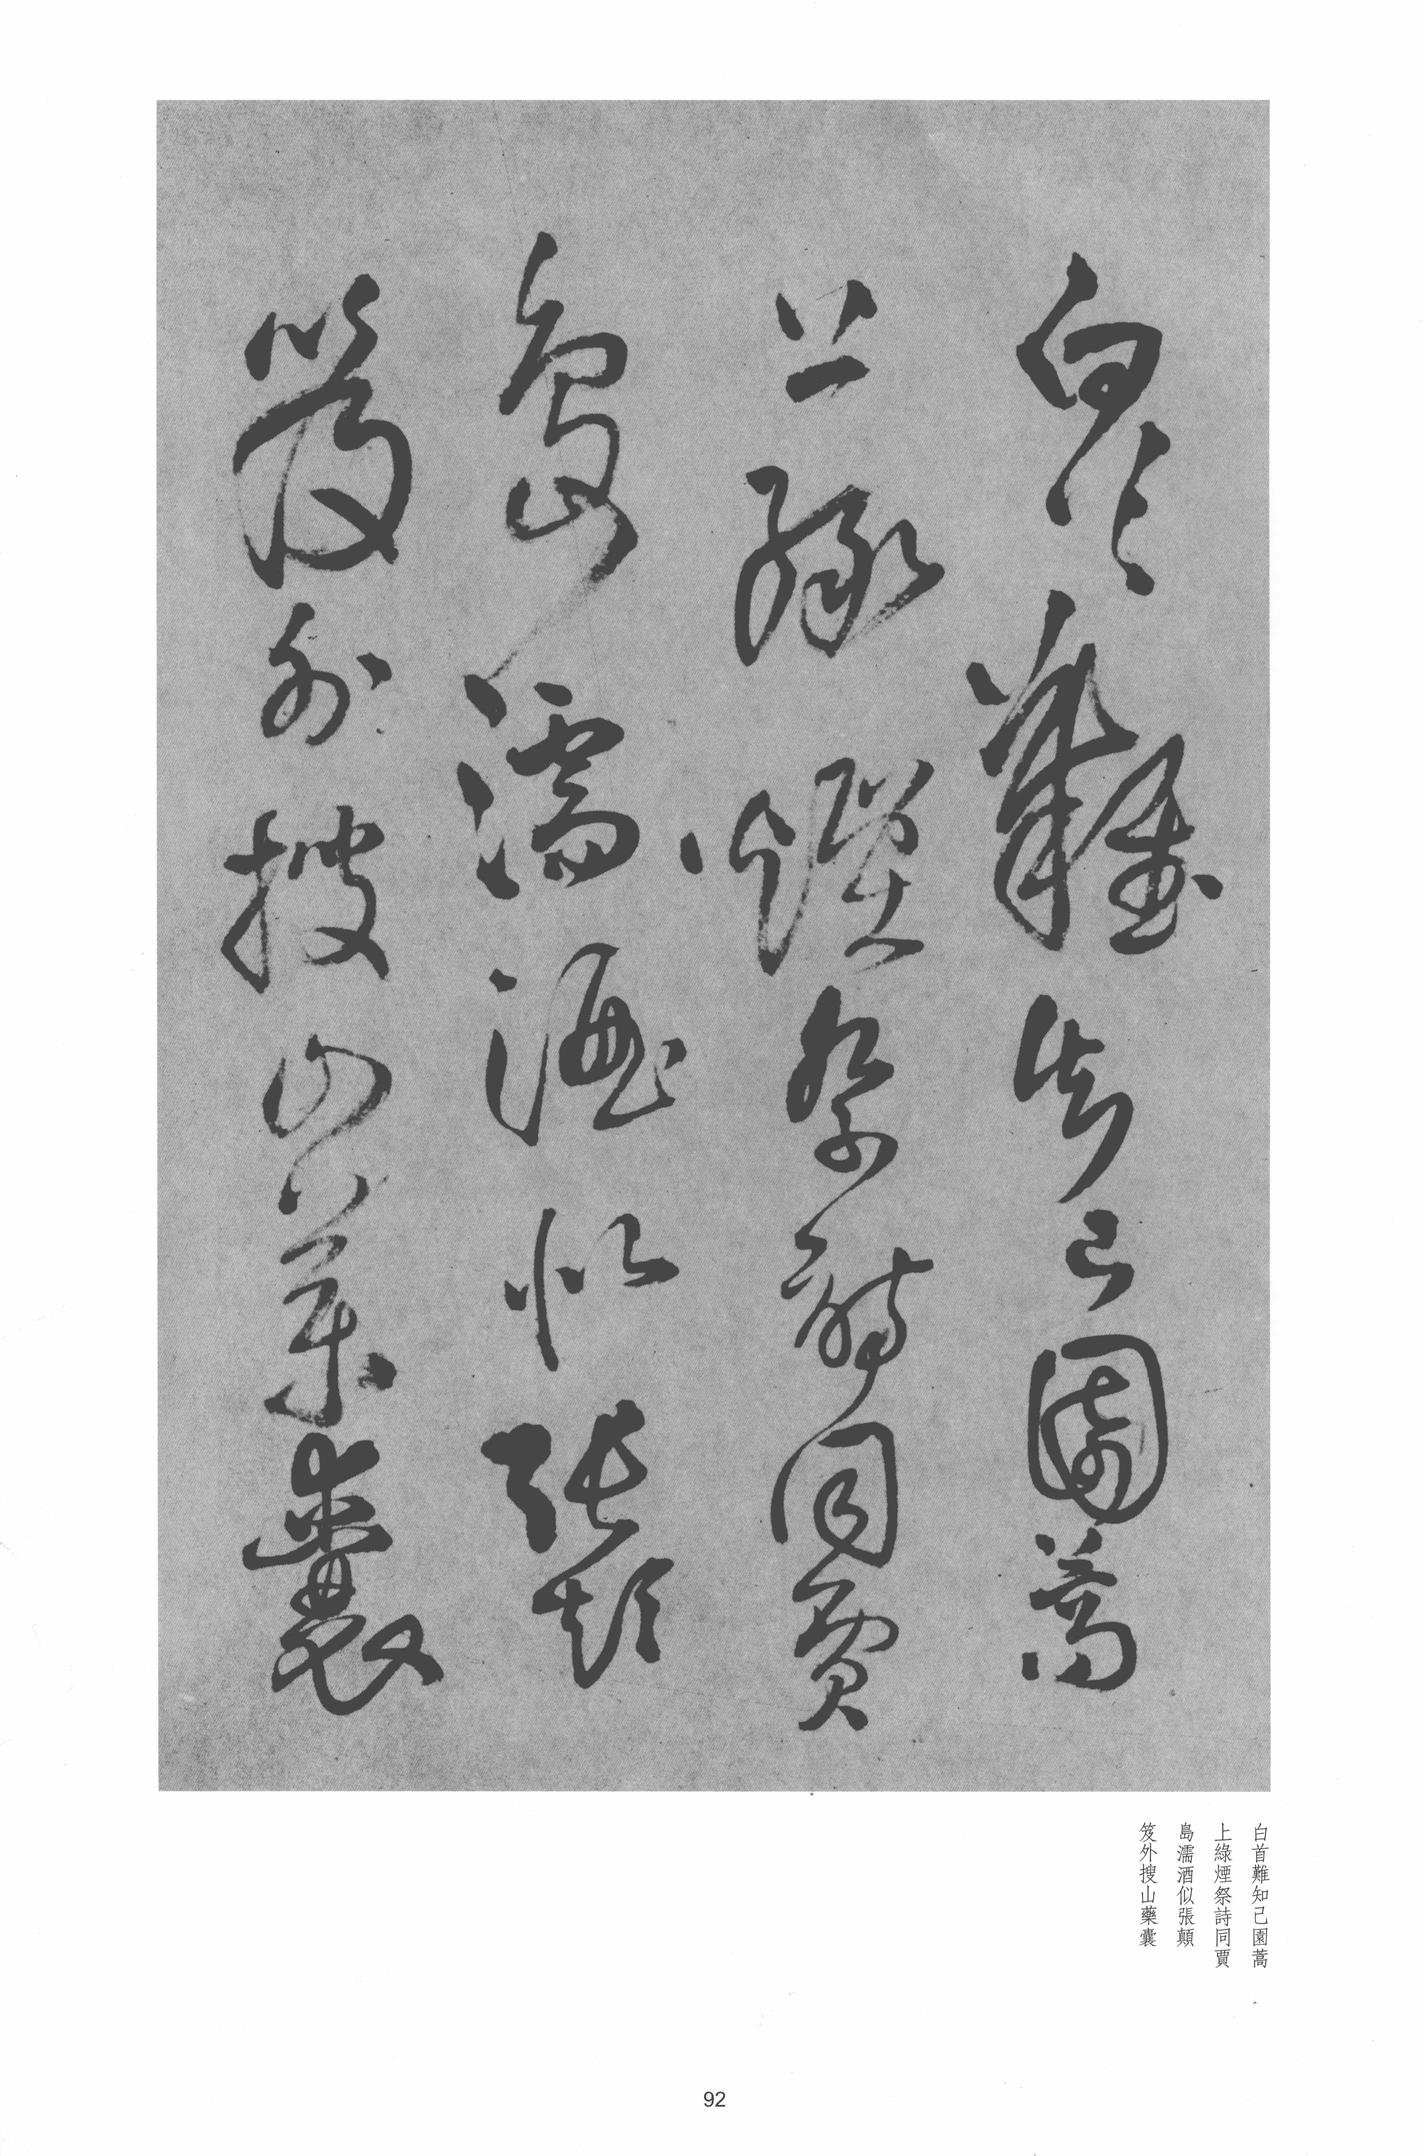 白首難知己園蒿
上綠煙祭詩同賈
島濡酒似張顛
笈外搜山藥囊
白首難知己園蒿
上綠煙祭詩同賈
島濡酒似張顛
笈外搜山藥囊
92